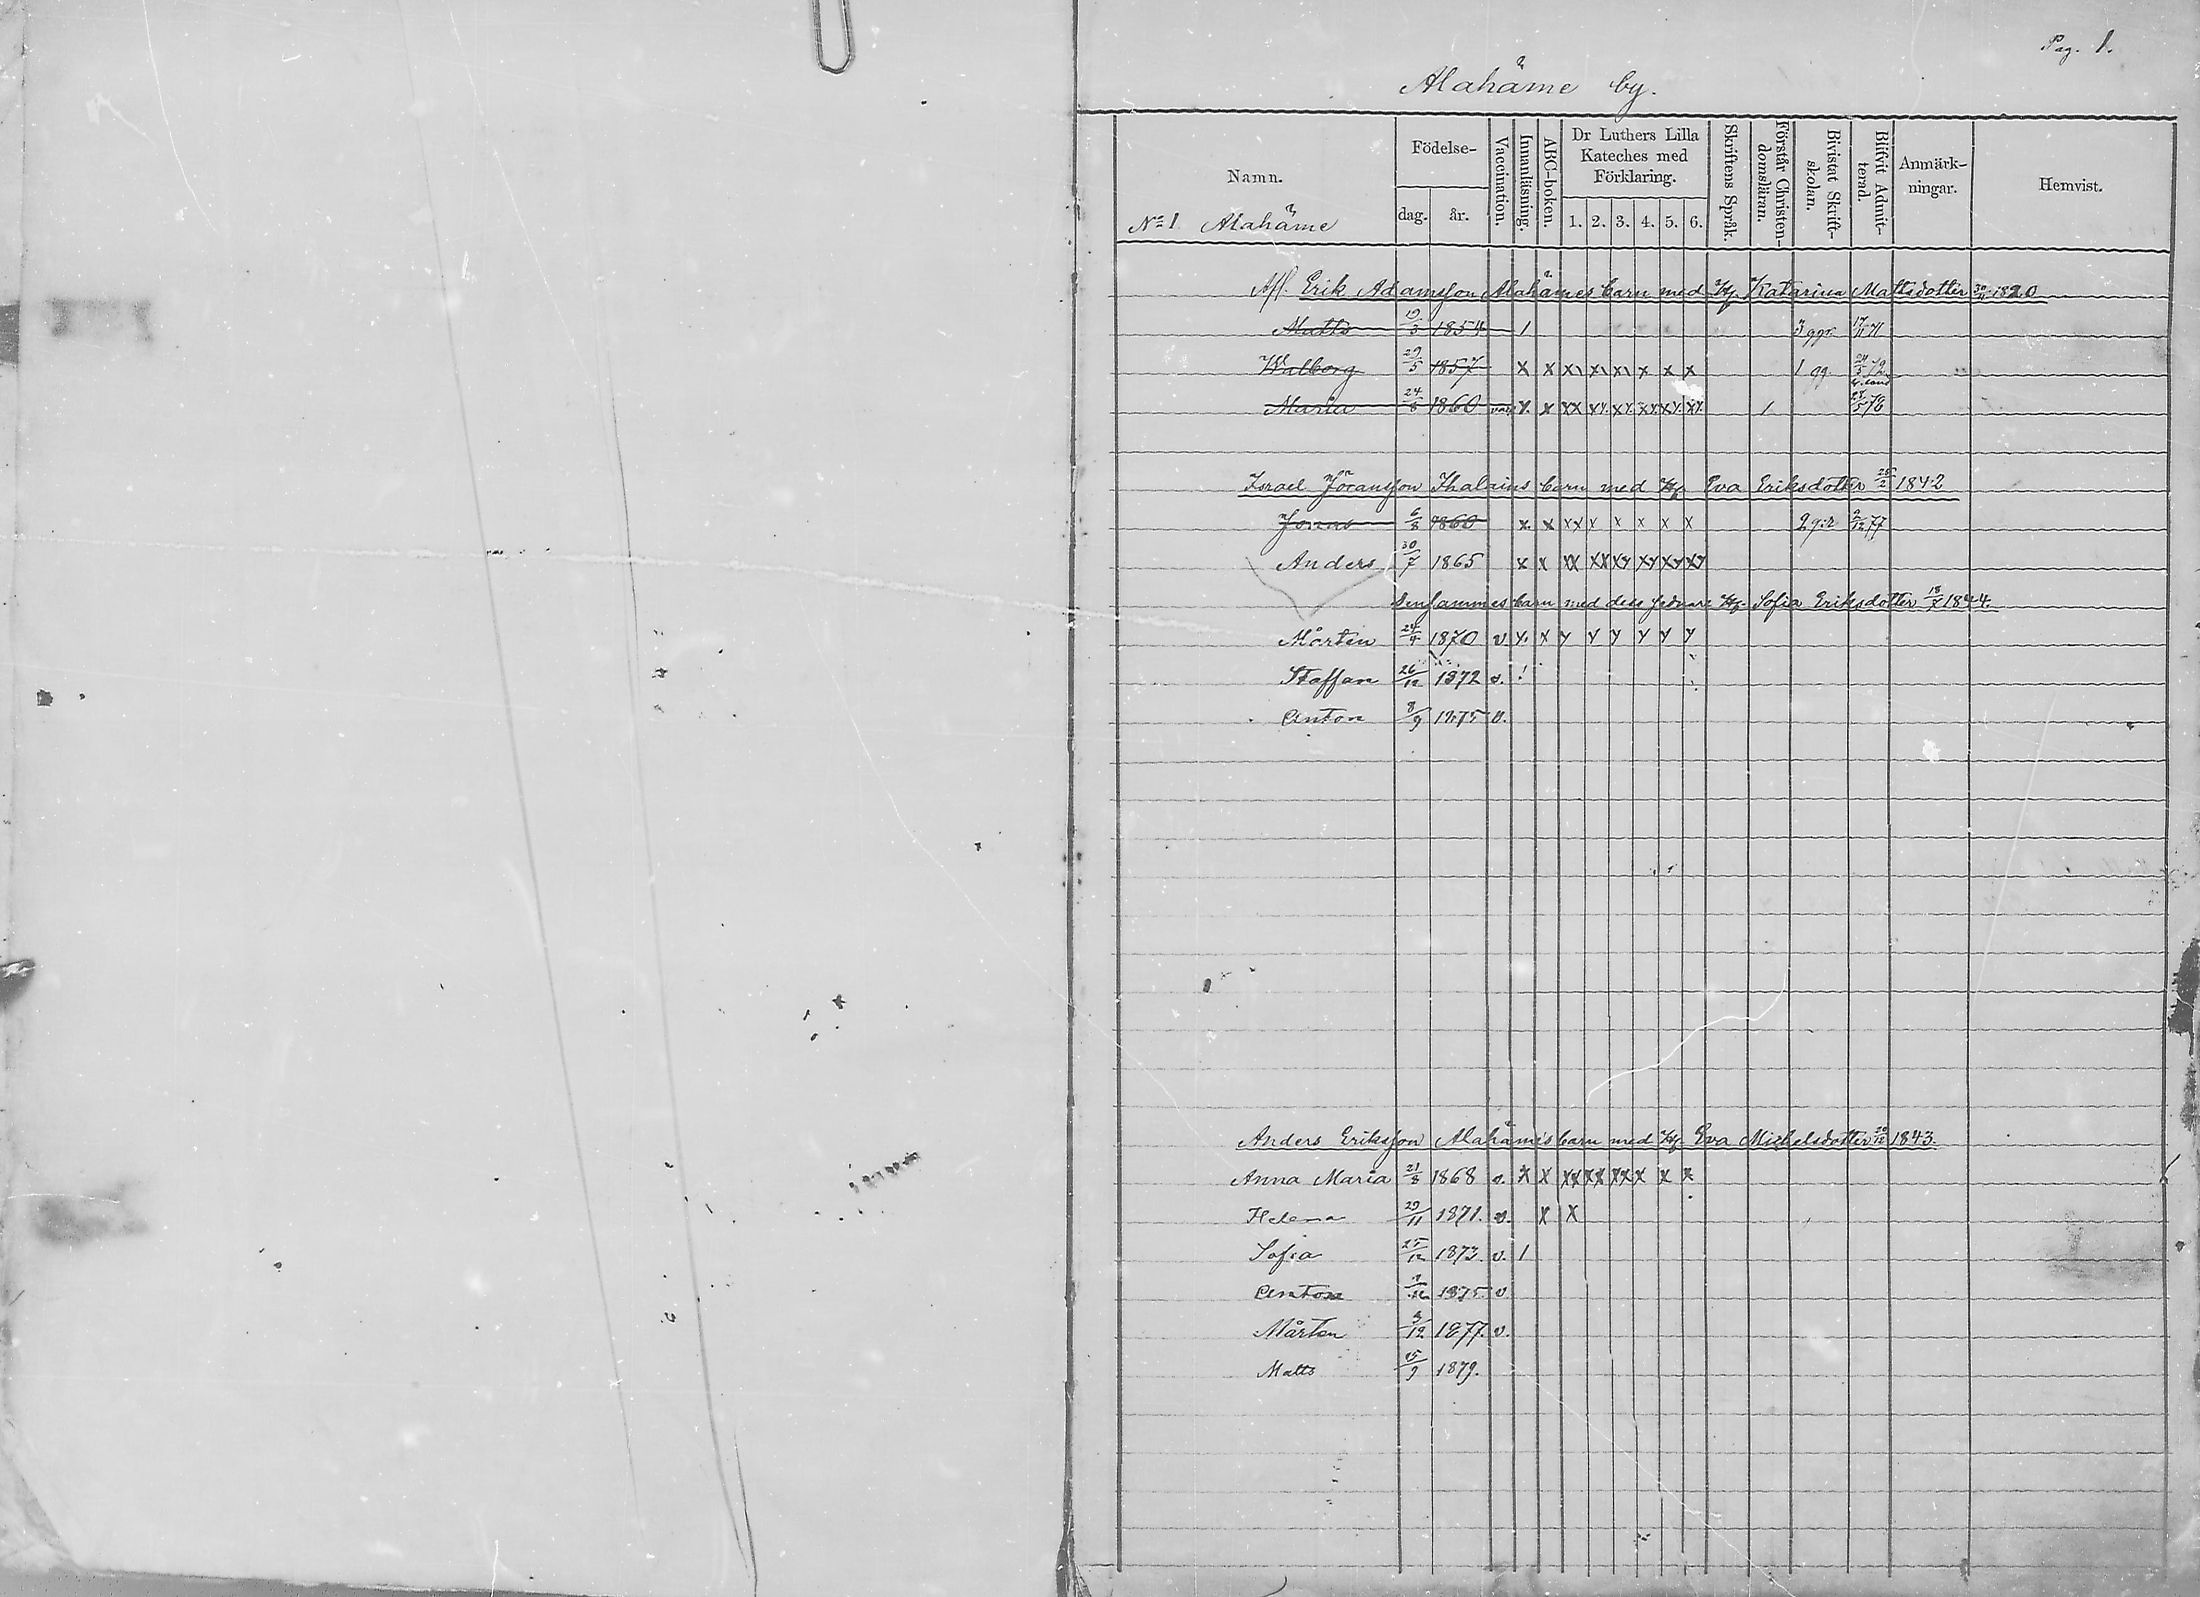 Pag. 1.
Alahäme by.
Namn.
Födelse-
dag.
år.
Vaccination.
Innanläsning.
ABC-boken.
Dr Luthers Lilla
Kateches med
Förklaring.
1. 2. 3. 4. 5. 6.
Skriftens Språk.
Förstår Christen-
domsläran.
Bivistat Skrift-
skolan.
Blifvit Admit-
terad.
Anmärk-
ningar.
Hemvist.
No 1 Alahäme
Afl. Erik Adamsson Alahämes barn med H. Katarina Mattsdotter 30/11 1820
Matts 19/3 1854 1 3 ggr. 17/11 71
Walborg 29/5 1857 x x x\ x\ x\ x x x 1 gg. 24/5 72
Maria 24/8 1860 vac. x x xx xx xx xx xx xx / 25/5 78
Israel Jöransson Thalains barn med H. Eva Eriksdotter 25/2 1842
Jonas 6/8 1860 x x xx x x x x x 2 g:r 2/12 77
Anders 30/7 1865 x x xx xx xy xy xy xy
Densammes barn med dess H. Sofia Eriksdotter 1844.
Mårten 24/9 1870 v y. x y y y y y y
Staffan 26/12 1872 v. !
Anton 8/9 1875 v.
Anders Eriksson Alahämes barn med H. Eva Michelsdotter 20/12 1843.
Anna Maria 21/8 1868 v. x x xx xx xx x x x
Helena 29/11 1871. v. x x
Sofia 25/12 1873. v. 1
Anton 1875. v
Mårten 3/12 1877. v.
Matts 15/9 1879.